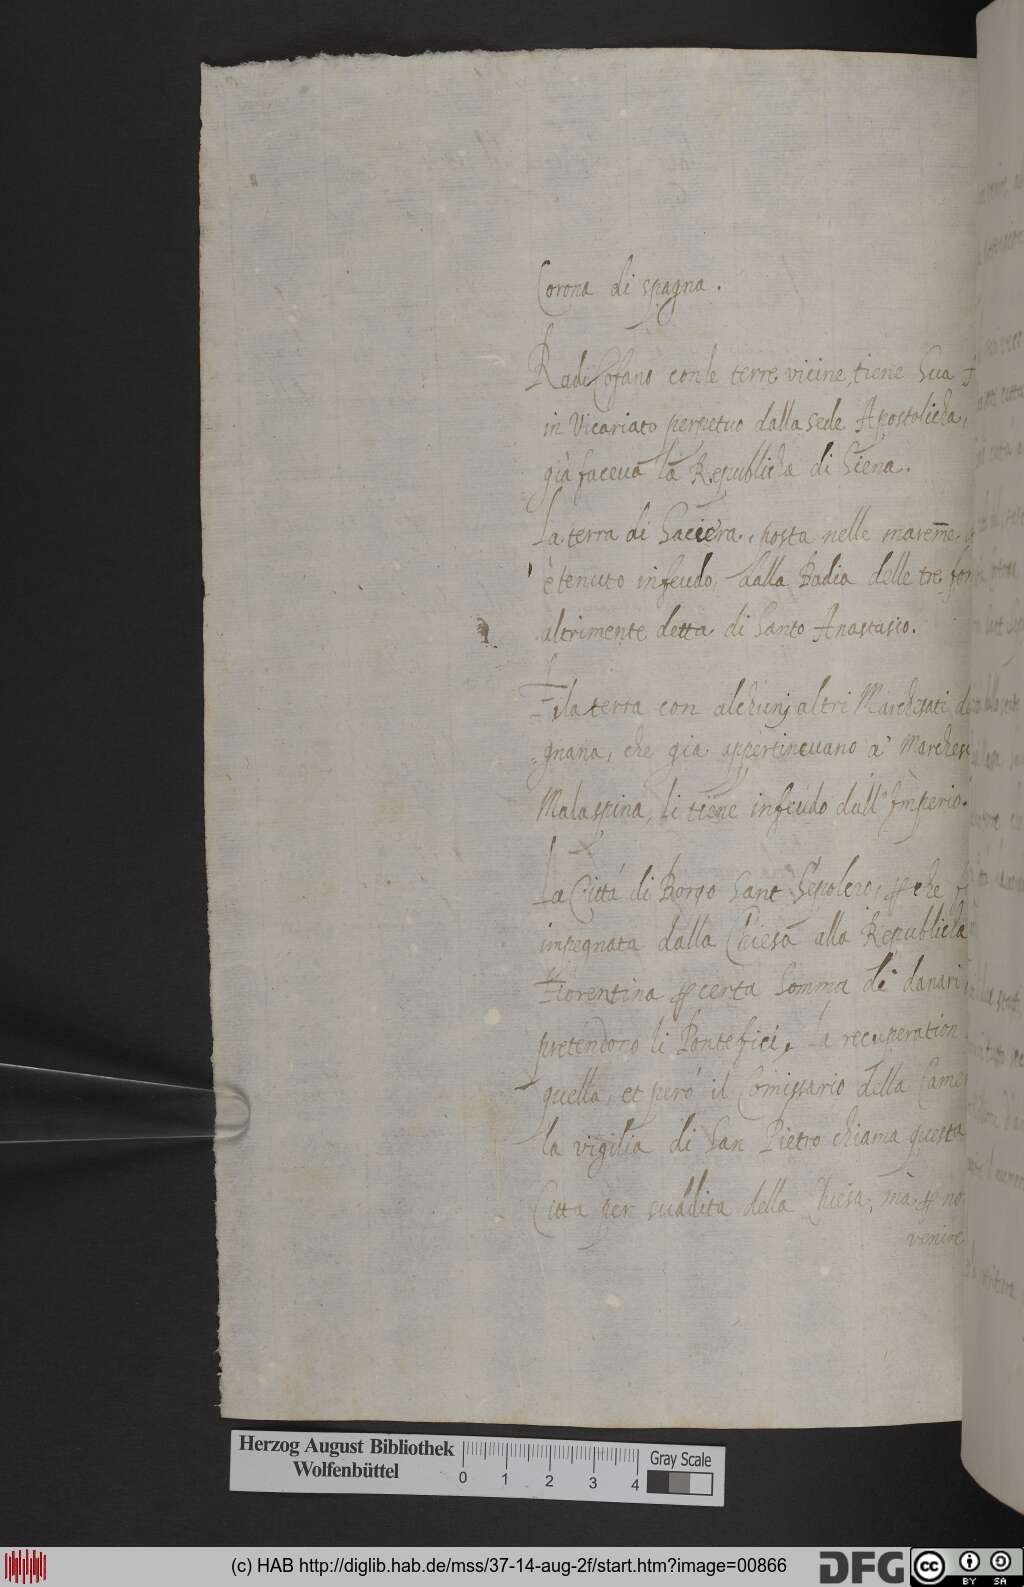 Corona di spagna.
Radicofano con le terre vicine, tiene Sua
in Vicariato perpetuo dalla sede Apostolicha,
già faceua la Republicha di Siena.
La terra di posta nelle mareme
è tenuto infeudo, dalla Badia delle tre fon
altrimente detta di Santo Anastasio.
Filaterra con alchunj altri Marchesati di
gnana, che gia appertineuano à Marchesi
Malaspina, li tiene infeudo dall' Imperio.
La Città di Borgo Sant Sepolcro, ꝑche
impegnata dalla Chiesa alla Republicha
Fiorentina ꝑ certa somma di danari
pretendono li Pontefici, la recuperation
quella, et però il Comissario della Camer
la vigilia di San Pietro chiama questa
Città per suddita della Chiesa, mà ꝑ no
venire
Herzog August Bibliothek
Wolfenbüttel
0 1 2 3 4
Gray Scale
(c) HAB http://diglib.hab.de/mss/37-14-aug-2f/start.htm?image=00866
DFG
cc BY SA